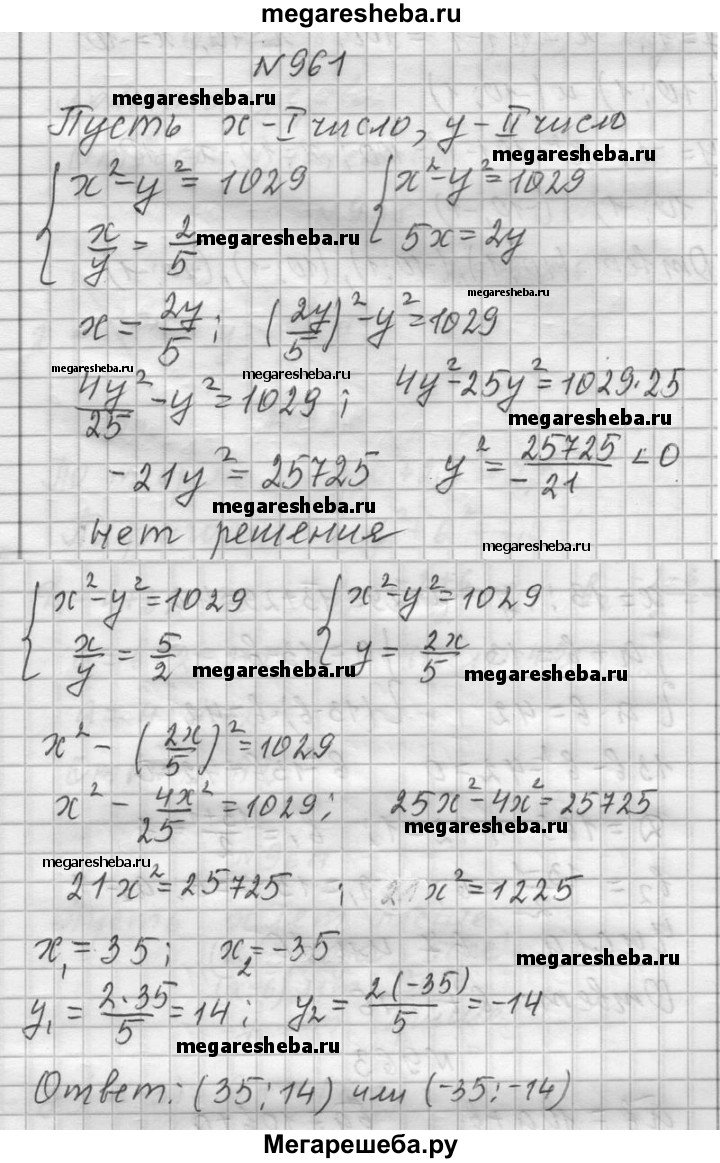 megaresheba.ru
№961
megaresheba.ru
Пусть x - I число, y - II число
megaresheba.ru
{ x² - y² = 1029 { x² - y² = 1029
x/y = 2/5 megaresheba.ru 5x = 2y
megaresheba.ru
x = 2y/5 ; (2y/5)² - y² = 1029
megaresheba.ru megaresheba.ru
4y²/25 - y² = 1029 ; 4y² - 25y² = 1029·25
megaresheba.ru
-21y² = 25725 y² = 25725/-21 < 0
megaresheba.ru
нет решения megaresheba.ru
{ x² - y² = 1029 { x² - y² = 1029
x/y = 5/2 megaresheba.ru y = 2x/5 megaresheba.ru
x² - (2x/5)² = 1029
x² - 4x²/25 = 1029 ; 25x² - 4x² = 25725
megaresheba.ru
megaresheba.ru
21x² = 25725 ; x² = 1225
x₁ = 35 ; x₂ = -35 megaresheba.ru
y₁ = 2·35/5 = 14 ; y₂ = 2(-35)/5 = -14
megaresheba.ru
Ответ: (35; 14) или (-35; -14)
Мегарешеба.ру